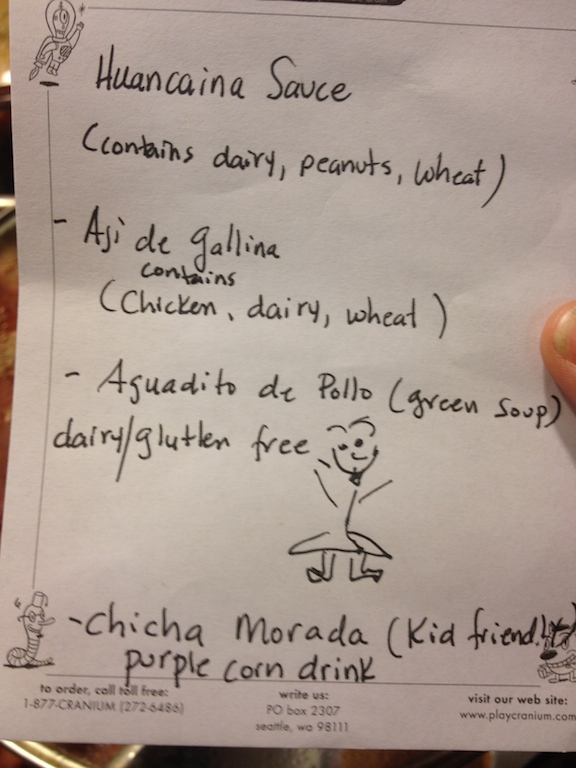 Huancaina Sauce
(contains dairy, peanuts, wheat)
- Aji de gallina
contains
(Chicken, dairy, wheat)
- Aguadito de Pollo (green soup)
dairy/glutten free
- Chicha Morada (Kid friendly)
purple corn drink
to order, call toll free:
1-877-CRANIUM (272-6486)
write us:
PO box 2307
seattle, wa 98111
visit our web site:
www.playcranium.com